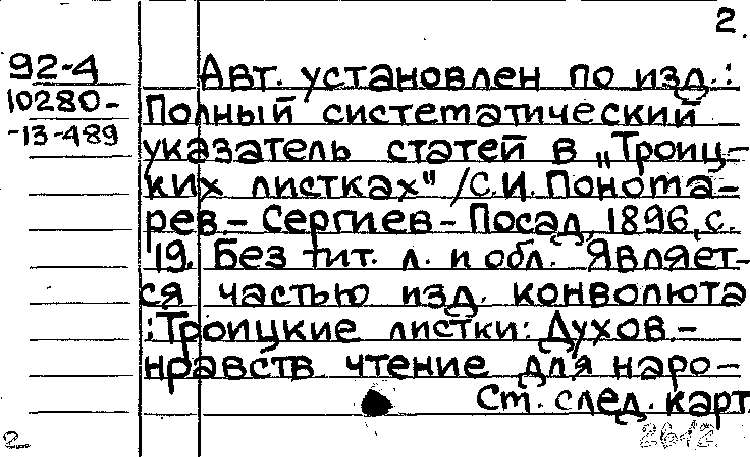 2.
92-4
10280-
-13-489
Авт. установлен по изд.:
Полный систематический
указатель статей в „Троиц-
ких листках" /С.И. Понома-
рев.- Сергиев-Посад, 1896, с.
19. Без тит. л. и обл. Являет-
ся частью изд. конволюта
:Троицкие листки: Духов.-
нравств чтение для наро-
См. след. карт.
2
2612